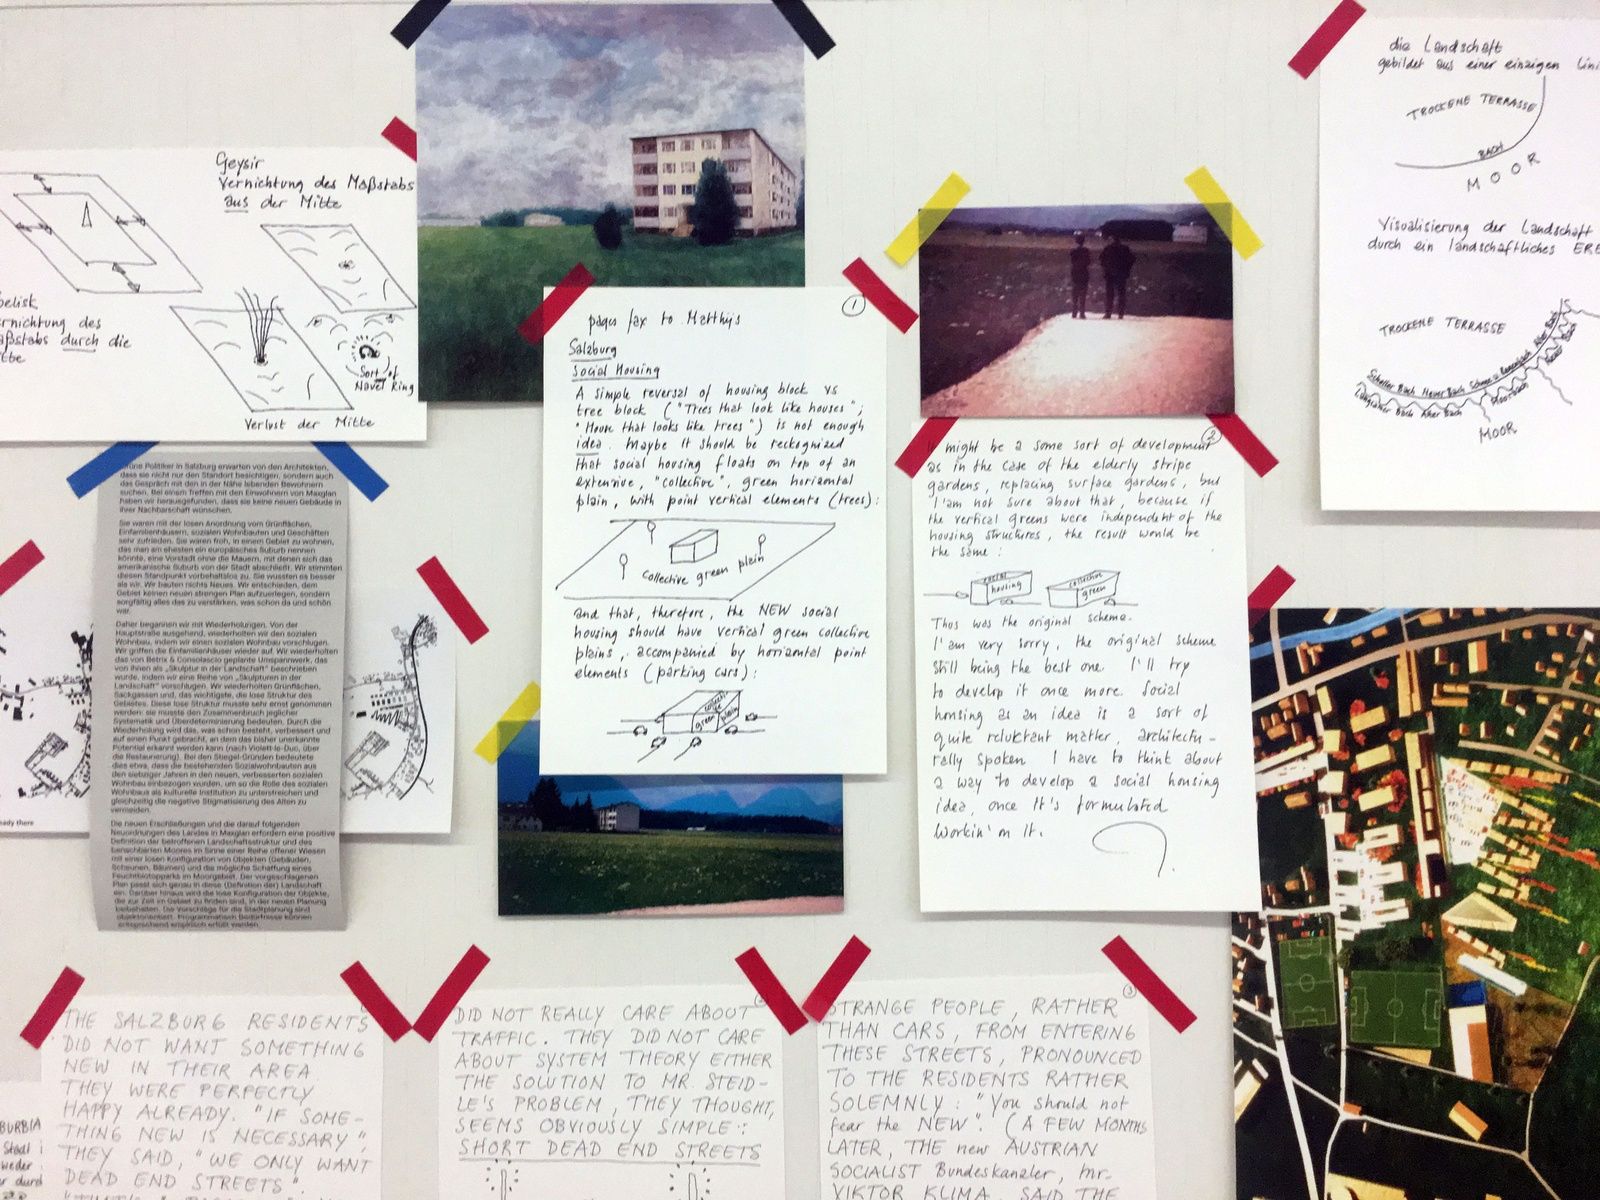 Geysir
Vernichtung des Maßstabs
aus der Mitte
durch die
Sort of
Navel Ring
Verlust der Mitte
Grüne Politiker in Salzburg erwarten von den Architekten,
dass sie nicht nur den Standort besichtigen, sondern auch
das Gespräch mit den in der Nähe lebenden Bewohnern
suchen. Bei einem Treffen mit den Einwohnern von Maxglan
haben wir herausgefunden, dass sie keine neuen Gebäude in
ihrer Nachbarschaft wünschen.
Sie waren mit der losen Anordnung vom Grünflächen,
Einfamilienhäuser, sozialen Wohnbauten und Geschäften
sehr zufrieden. Sie waren froh, in einem Gebiet zu wohnen,
das man am ehesten ein europäisches Suburb nennen
könnte, eine Vorstadt ohne die Mauern, mit denen sich das
amerikanische Suburb von der Stadt abschließt. Wir stimmten
diesen Standpunkt vorbehaltlos zu. Sie wussten es besser
als wir. Wir bauten nichts Neues. Wir entschieden, dem
Gebiet keinen neuen strengen Plan aufzuerlegen, sondern
sorgfältig alles das zu verstärken, was schon da und schön
war.
Daher begannen wir mit Wiederholungen. Von der
Hauptstraße ausgehend, wiederholten wir den sozialen
Wohnbau, indem wir einen sozialen Wohnbau vorschlugen.
Wir griffen die Einfamilienhäuser wieder auf. Wir wiederholten
das von Betrix & Consolascio geplante Umspannwerk, das
von ihnen als „Skulptur in der Landschaft" beschrieben
wurde, indem wir eine Reihe von „Skulpturen in der
Landschaft" vorschlugen. Wir wiederholten Grünflächen,
Sackgassen und, das wichtigste, die lose Struktur des
Gebietes. Diese lose Struktur musste sehr ernst genommen
werden: sie musste den Zusammenbruch jeglicher
Systematik und Überdeterminierung bedeuten. Durch die
Wiederholung wird das, was schon besteht, verbessert und
auf einen Punkt gebracht, an dem das bisher unerkannte
Potential erkannt werden kann (nach Viollet-le-Duc, über
die Restaurierung). Bei den Stiegel-Gründen bedeutete
dies etwa, dass die bestehenden Sozialwohnbauten aus
den siebziger Jahren in den neuen, verbesserten sozialen
Wohnbau einbezogen wurden, um so die Rolle des sozialen
Wohnbaus als kulturelle Institution zu unterstreichen und
gleichzeitig die negative Stigmatisierung des Alten zu
vermeiden.
Die neuen Erschließungen und die darauf folgenden
Neuordnungen des Landes in Maxglan erfordern eine positive
Definition der betroffenen Landschaftsstruktur und des
benachbarten Moores im Sinne einer Reihe offener Wiesen
mit einer losen Konfiguration von Objekten (Gebäuden,
Scheunen, Bäumen) und die mögliche Schaffung eines
Feuchtbiotopparks im Moorgebiet. Der vorgeschlagenen
Plan passt sich genau in diese (Definition der) Landschaft
ein. Darüber hinaus wird die lose Konfiguration der Objekte,
die zur Zeit im Gebiet zu finden sind, in der neuen Planung
beibehalten. Die Vorschläge für die Stadtplanung sind
objektorientiert. Programmatisch Bedürfnisse können
entsprechend empirisch erfüllt werden.
eady there
1
pages fax to Matthijs
Salzburg
Social Housing
A simple reversal of housing block vs
tree block ("Trees that look like houses";
"House that looks like trees") is not enough
idea. Maybe it should be reckognized
that social housing floats on top of an
extensive, "collective", green horizontal
plain, with point vertical elements (trees):
collective green plain
and that, therefore, the NEW social
housing should have vertical green collective
plains, accompanied by horizontal point
elements (parking cars):
collective
green plain
2
It might be a some sort of development
as in the case of the elderly stripe
gardens, replacing surface gardens, but
I'am not sure about that, because if
the vertical greens were independent of the
housing structures, the result would be
the same:
social
housing
collective
green
Thus was the original scheme.
I'am very sorry, the original scheme
still being the best one. I'll try
to develop it once more. Social
housing as an idea is a sort of
quite reluktant matter, architectu-
rally spoken. I have to think about
a way to develop a social housing
idea, once it's formulated
Workin' on it.
die Landschaft
gebildet aus einer einzigen Lini
TROCKENE TERRASSE
BACH
MOOR
Visualisierung der Landschaft
durch ein landschaftliches ERE
TROCKENE TERRASSE
MOOR
THE SALZBURG RESIDENTS
DID NOT WANT SOMETHING
NEW IN THEIR AREA.
THEY WERE PERFECTLY
HAPPY ALREADY. "IF SOME-
THING NEW IS NECESSARY",
THEY SAID, "WE ONLY WANT
DEAD END STREETS".
2
DID NOT REALLY CARE ABOUT
TRAFFIC. THEY DID NOT CARE
ABOUT SYSTEM THEORY EITHER
THE SOLUTION TO MR. STEID-
LE'S PROBLEM, THEY THOUGHT,
SEEMS OBVIOUSLY SIMPLE:
SHORT DEAD END STREETS
3
STRANGE PEOPLE, RATHER
THAN CARS, FROM ENTERING
THESE STREETS, PRONOUNCED
TO THE RESIDENTS RATHER
SOLEMNLY: "You should not
fear the NEW". (A FEW MONTHS
LATER, THE new AUSTRIAN
SOCIALIST Bundeskanzler, Mr.
VIKTOR KLIMA, SAID THE
BURBIA
Stadt i
weder
r durd